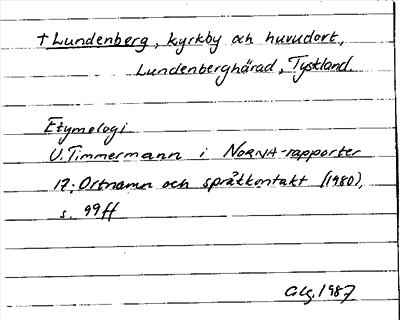 † Lundenberg, kyrkby och huvudort,
Lundenberghärad, Tyskland.
Etymologi
U. Timmermann i NORNA-rapporter
17: Ortnamn och språkkontakt (1980),
s. 99ff
1987